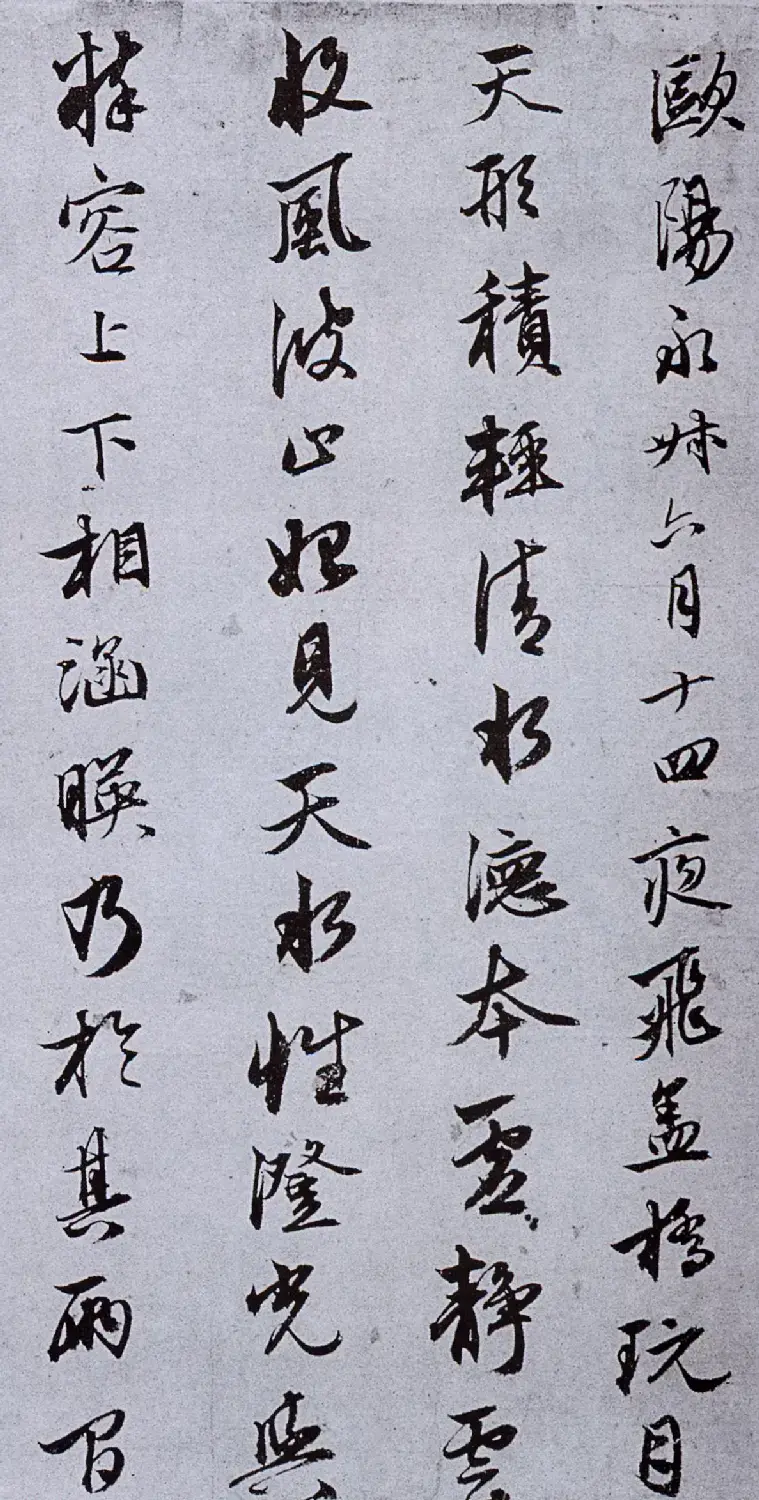 歐陽永叔六月十四夜飛盖橋玩月
天形積輕清水德本虛靜雲
收風波止始見天水性澄光與
粹容上下相涵暎乃於其兩間